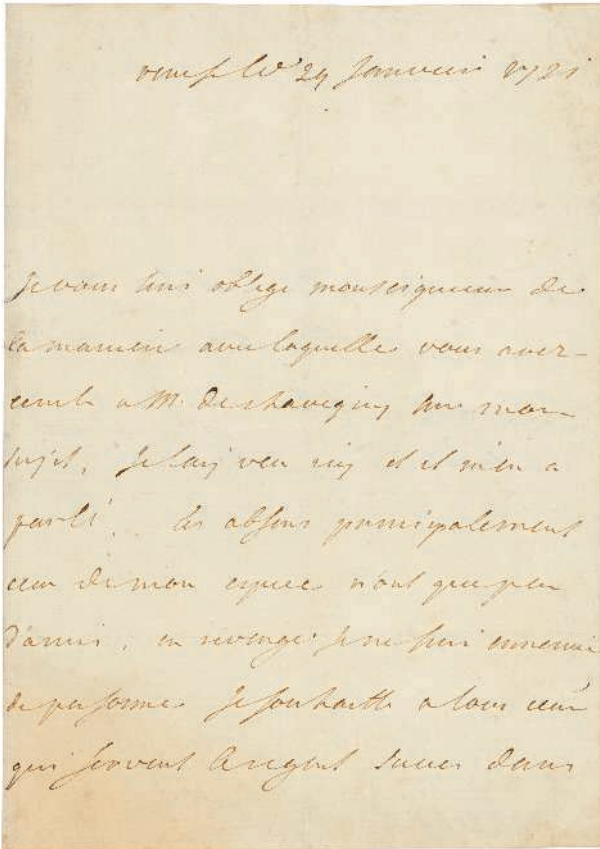 ce 29 Janvier 1721
Je vous suis oblige monseigneur de
la maniere avec laquelle vous aves
a M. de chavigny sur mon
sujet, je lay veu icy et il m'en a
parlé. les absens principalement
ceux de mon espece n'ont que peu
d'amis, en revenge je ne suis ennemi
de personne. Je souhaitte a tous ceux
qui servent le regent succes dans